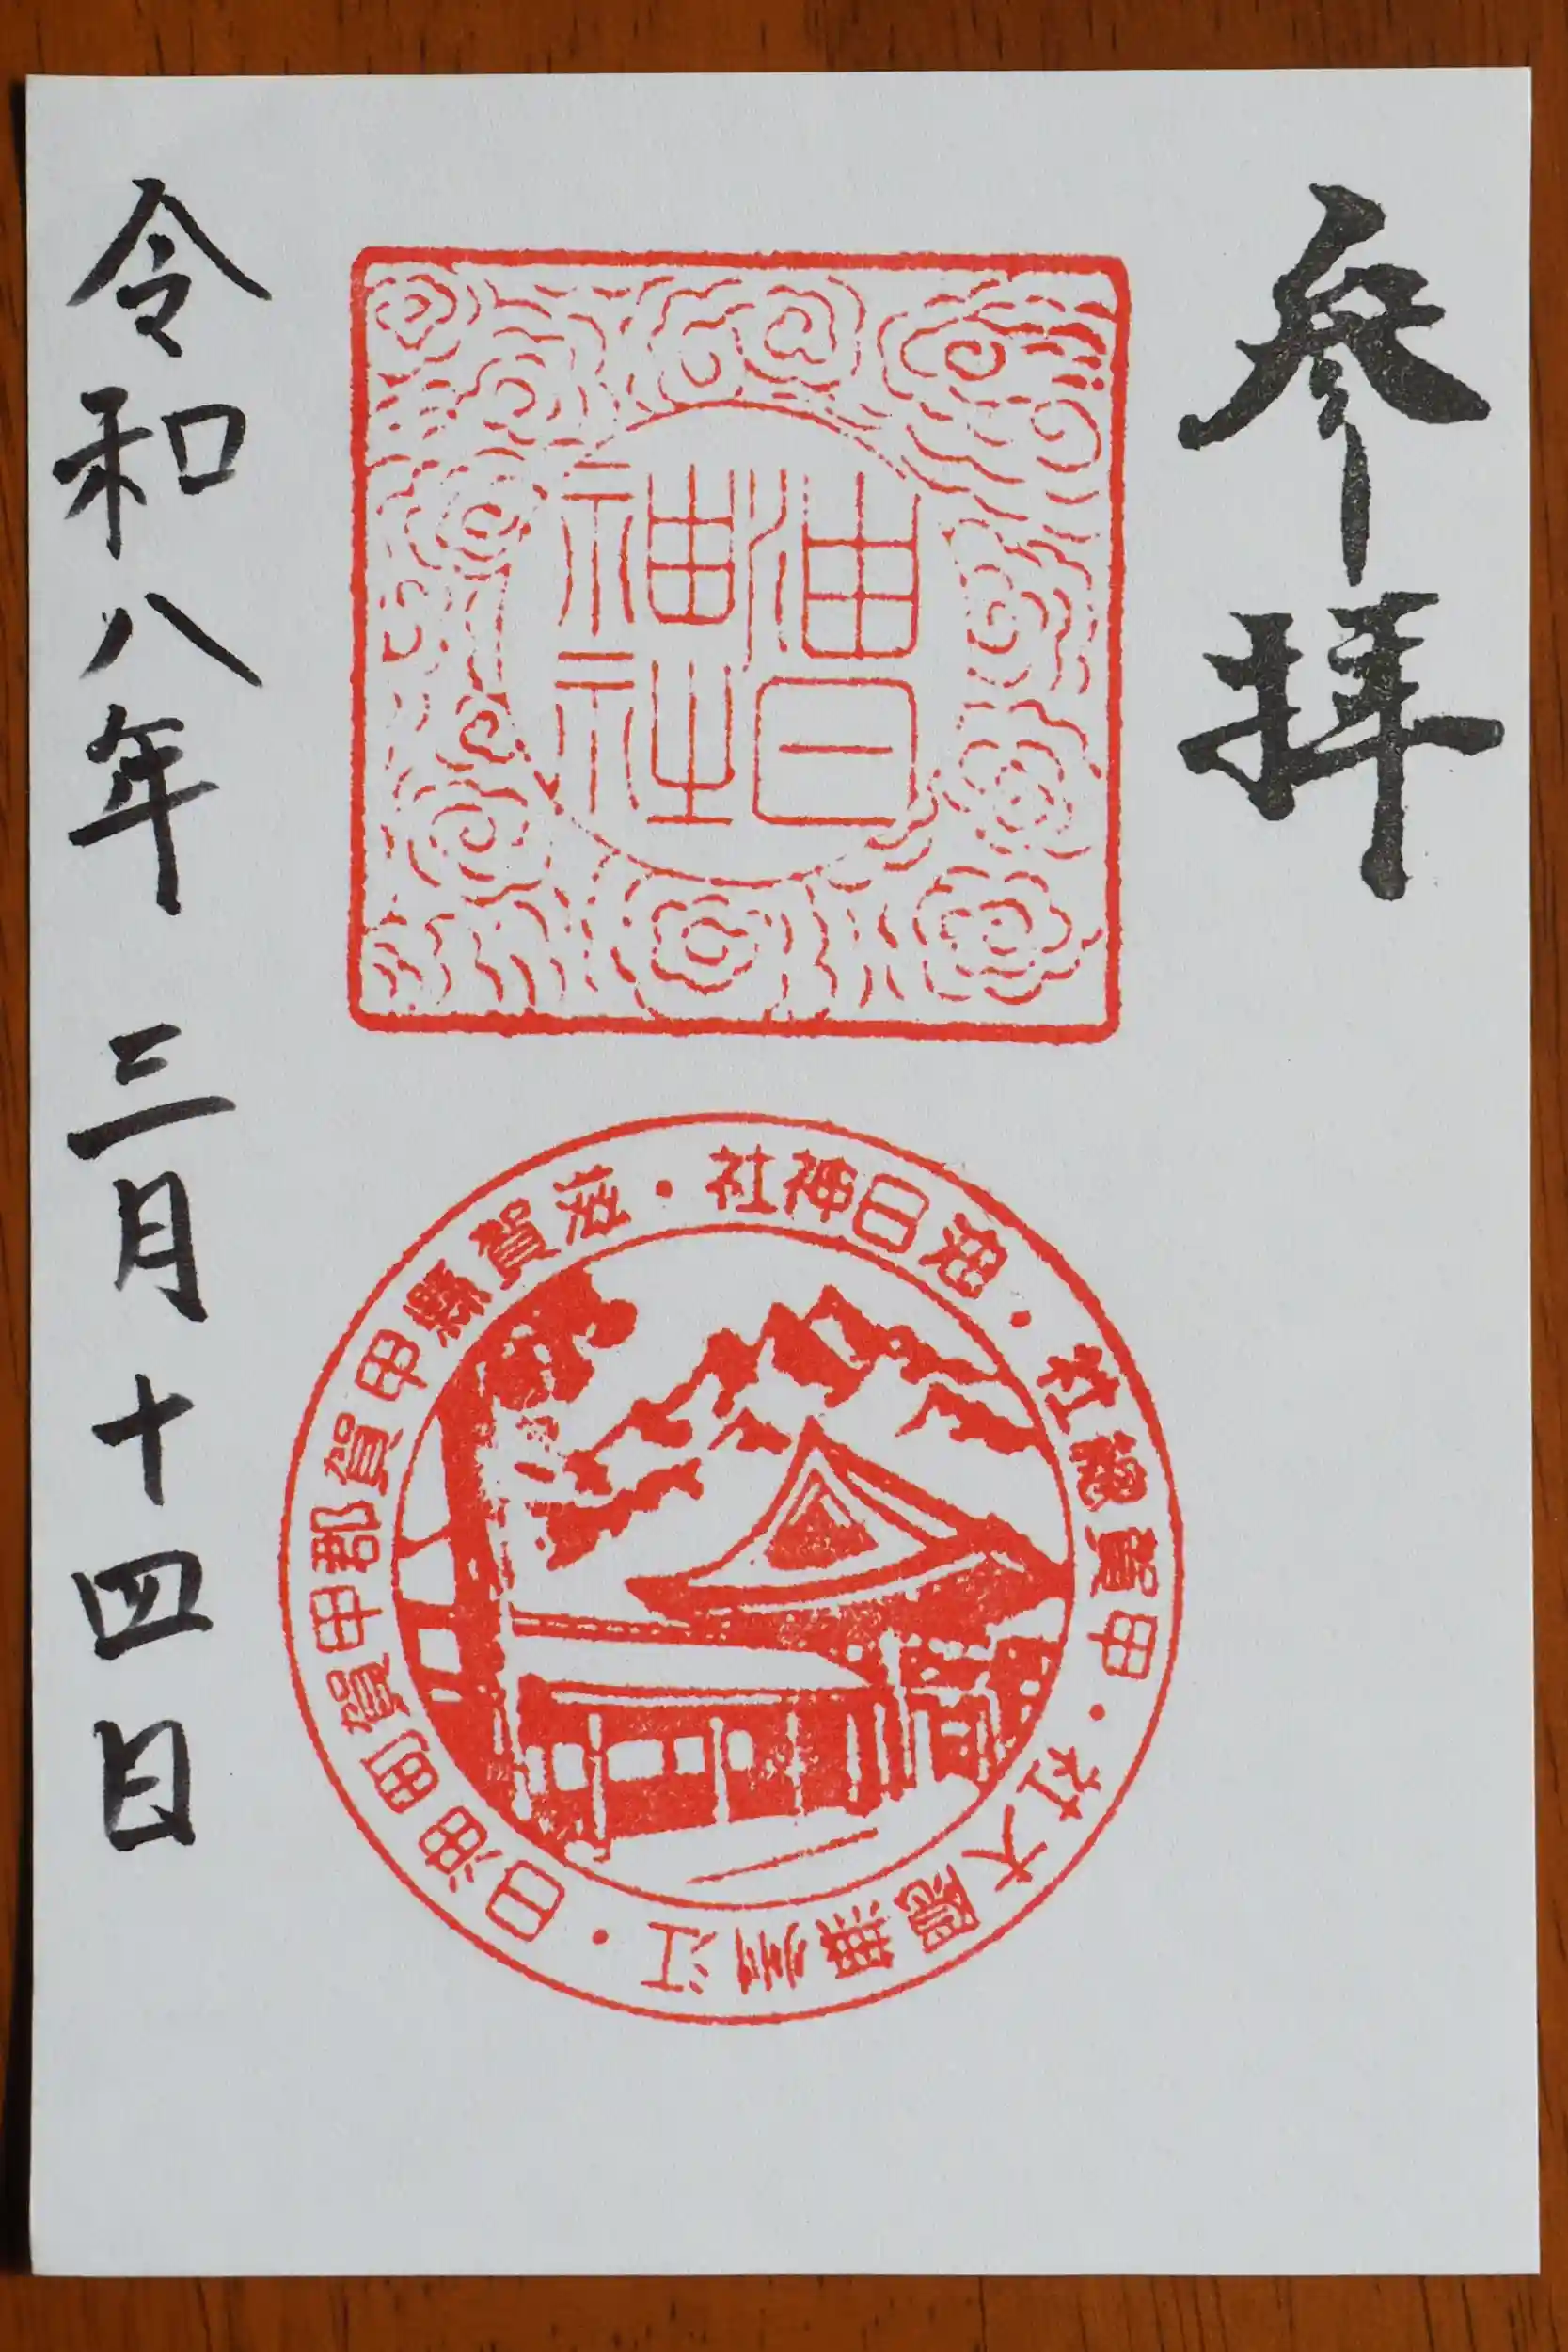 参拝
油日
神社
油日神社・滋賀縣甲賀郡甲賀町油日・江州無隠大社・甲賀總社・
令和八年 三月十四日